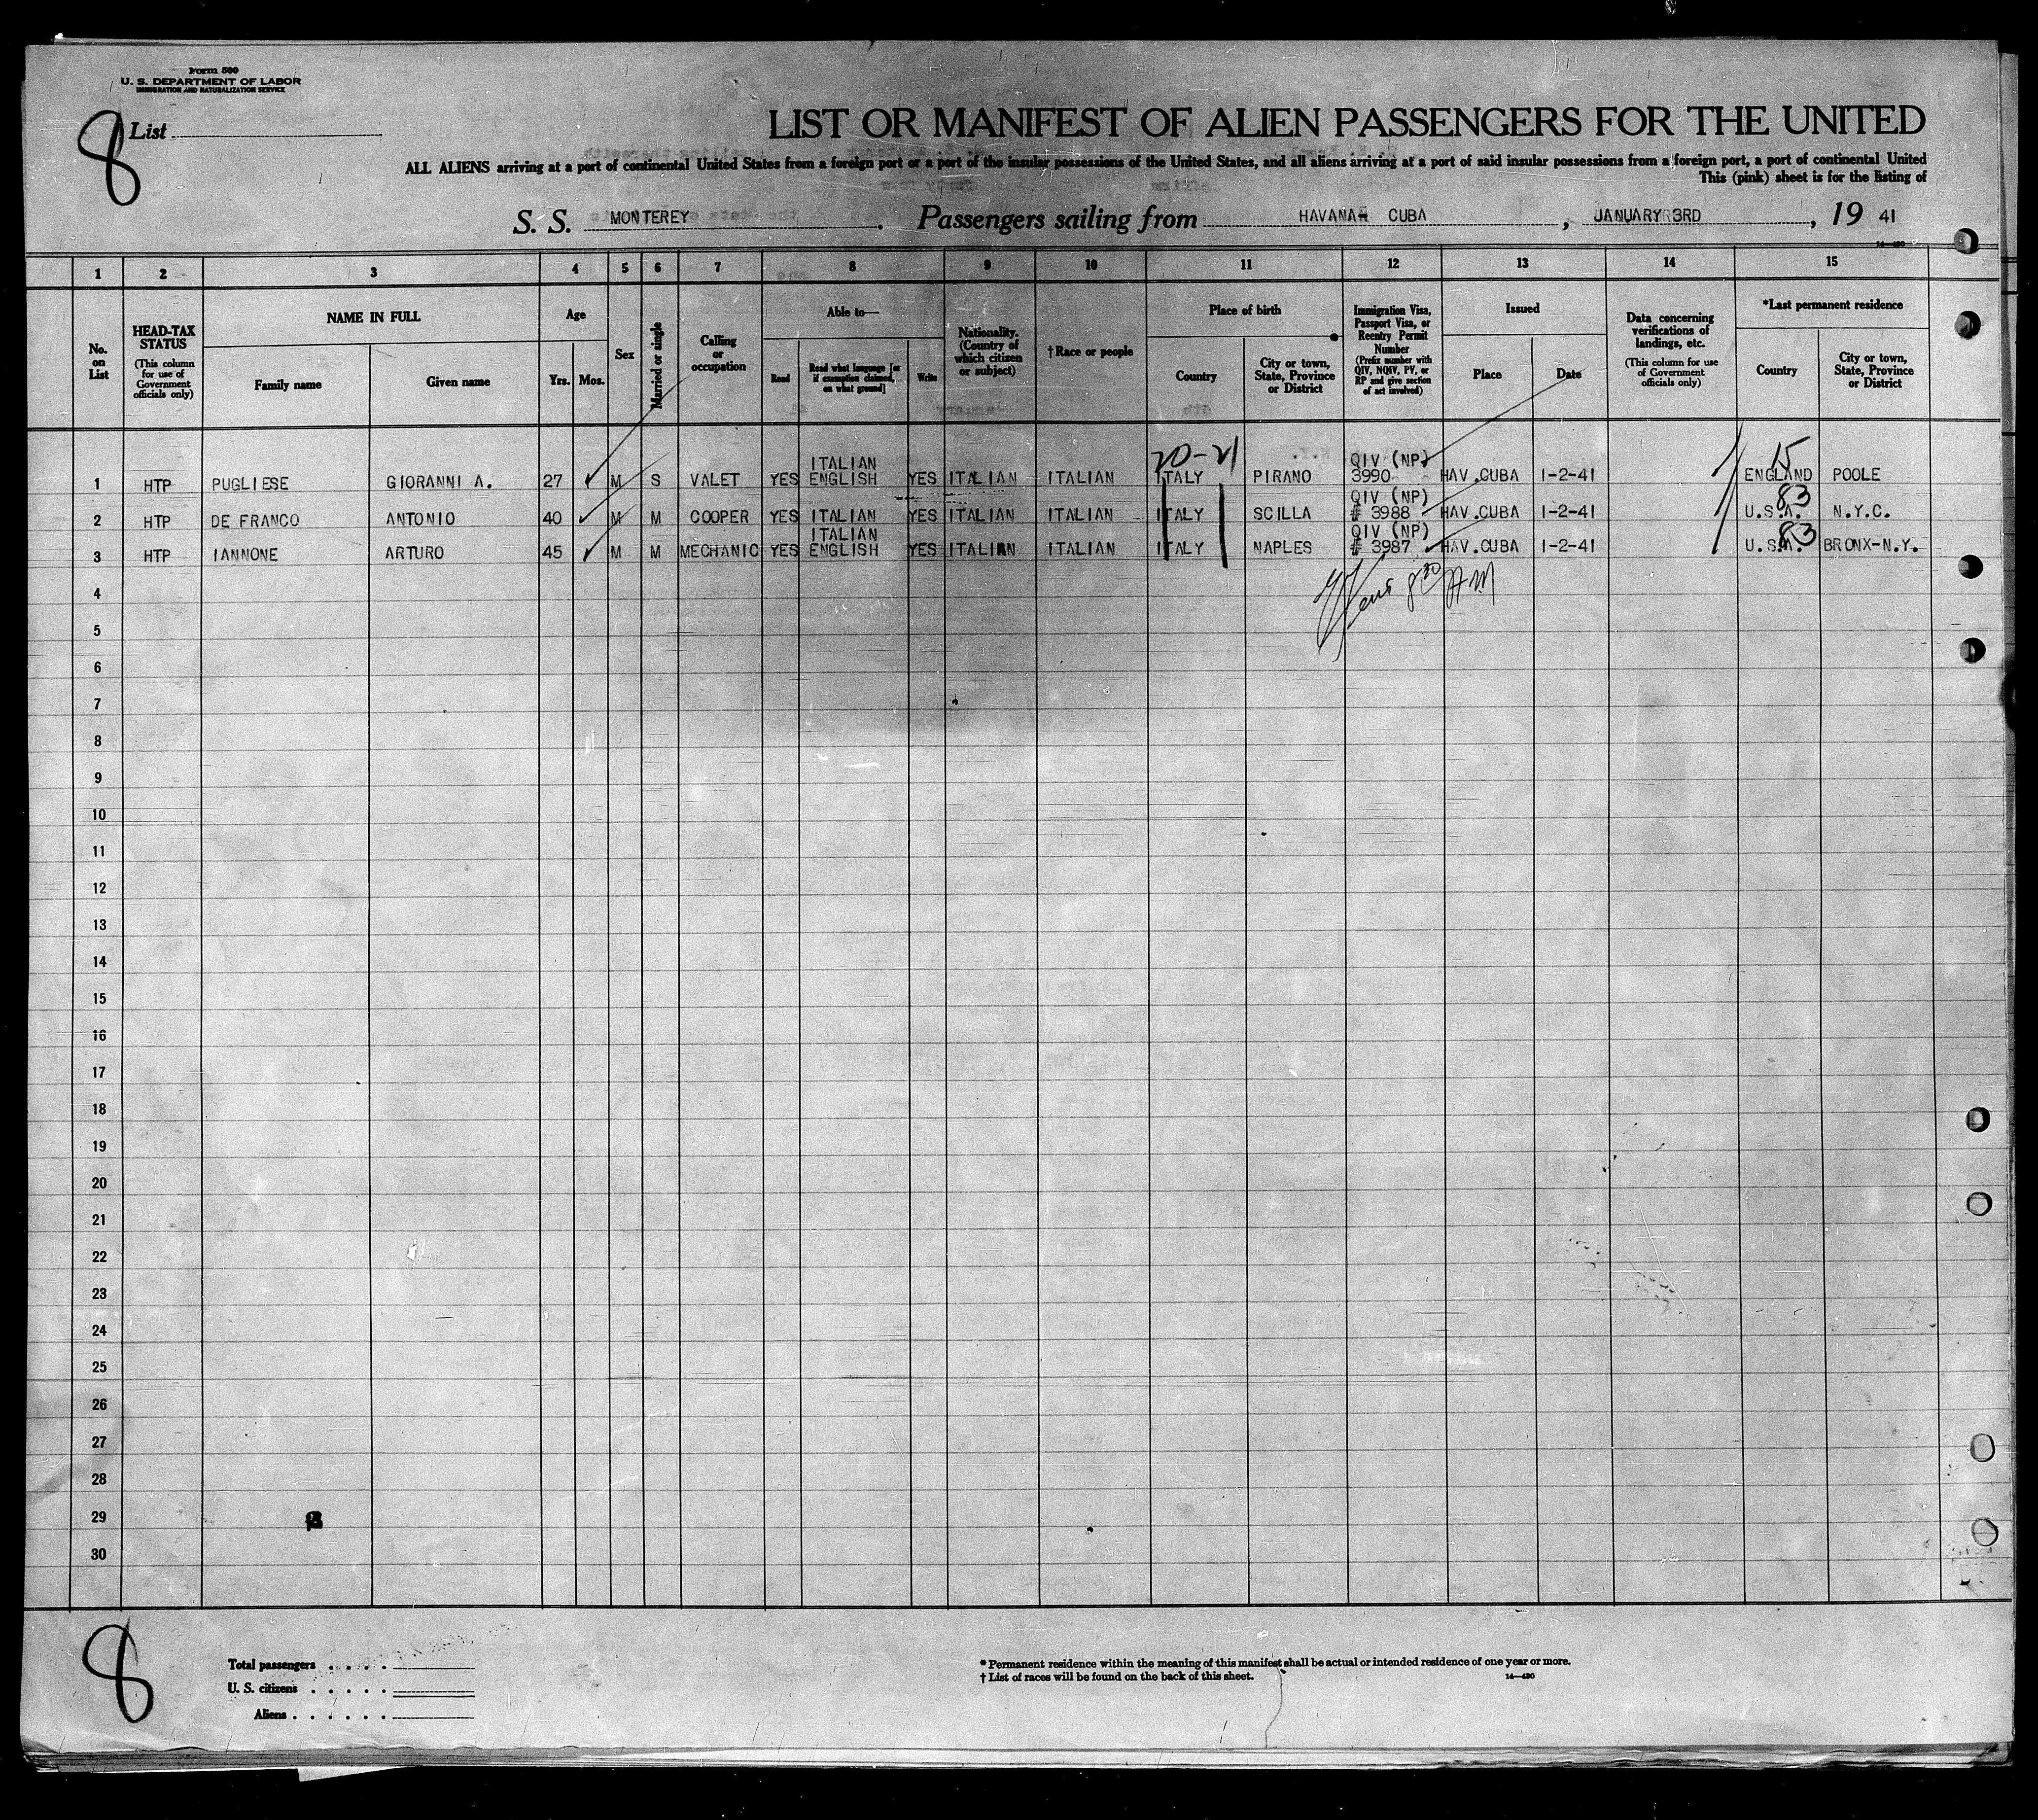 Form 500
U. S. DEPARTMENT OF LABOR
IMMIGRATION AND NATURALIZATION SERVICE
8 List
LIST OR MANIFEST OF ALIEN PASSENGERS FOR THE UNITED
ALL ALIENS arriving at a port of continental United States from a foreign port or a port of the insular possessions of the United States, and all aliens arriving at a port of said insular possessions from a foreign port, a port of continental United
This (pink) sheet is for the listing of
S. S. MONTEREY. Passengers sailing from HAVANA CUBA, JANUARY 3RD, 19 41
14—430
1 2 3 4 5 6 7 8 9 10 11 12 13 14 15
No. on List
HEAD-TAX STATUS (This column for use of Government officials only)
NAME IN FULL
Family name Given name
Age
Yrs. Mos.
Sex
Married or single
Calling or occupation
Able to—
Read Read what language [or if exemption claimed, on what ground] Write
Nationality. (Country of which citizen or subject)
† Race or people
Place of birth
Country City or town, State, Province or District
Immigration Visa, Passport Visa, or Reentry Permit Number (Prefix number with QIV, NQIV, PV, or RP and give section of act involved)
Issued
Place Date
Data concerning verifications of landings, etc. (This column for use of Government officials only)
*Last permanent residence
Country City or town, State, Province or District
20-21 15
ITALIAN QIV (NP)
1 HTP PUGLIESE GIORANNI A. 27 M S VALET YES ENGLISH YES ITALIAN ITALIAN ITALY PIRANO 3990 HAV.CUBA 1-2-41 ENGLAND POOLE
QIV (NP) 83
2 HTP DE FRANCO ANTONIO 40 M M COOPER YES ITALIAN YES ITALIAN ITALIAN ITALY SCILLA # 3988 HAV.CUBA 1-2-41 U.S.A. N.Y.C.
ITALIAN QIV (NP) 83
3 HTP IANNONE ARTURO 45 M M MECHANIC YES ENGLISH YES ITALIAN ITALIAN ITALY NAPLES # 3987 HAV.CUBA 1-2-41 U.S.A. BRONX-N.Y.
4 8 30 AM
5
6
7
8
9
10
11
12
13
14
15
16
17
18
19
20
21
22
23
24
25
26
27
28
29
30
8
Total passengers . . . .
U. S. citizens . . . . .
Aliens . . . . . .
* Permanent residence within the meaning of this manifest shall be actual or intended residence of one year or more.
† List of races will be found on the back of this sheet. 14—430